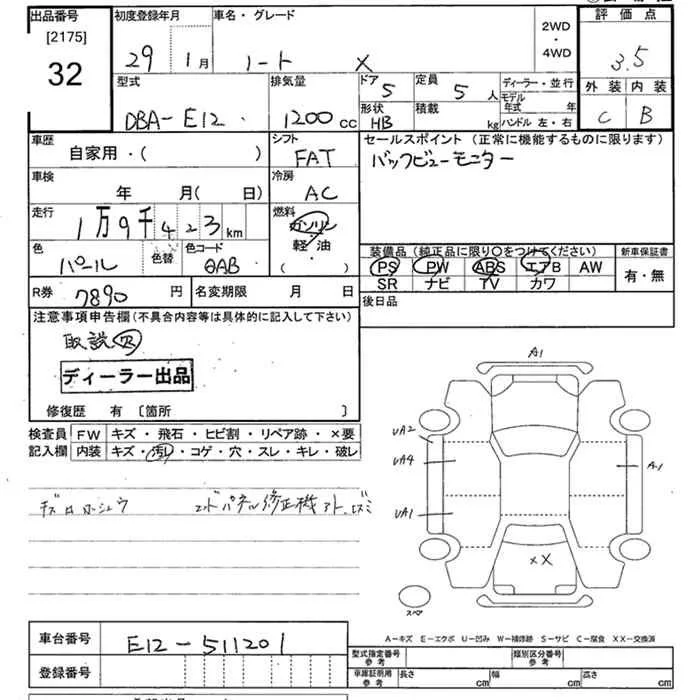 出品番号 初度登録年月 車名・グレード 2WD・4WD 評価点
[2175]
32
29 1月 ノート X 3.5
外装 内装
C B
型式 排気量 ドア 定員 ディーラー・並行
DBA-E12 1200cc 5 5人 モデル年式 年
形状 積載 ハンドル 左・右
HB kg
車歴 シフト セールスポイント(正常に機能するものに限ります)
自家用・( ) FAT バックビューモニター
車検 冷房
年 月(日) AC
走行 燃料
1万9千423km ガソリン
軽・油
( )
色 色替 色コード 装備品(純正品に限り○をつけてください) 新車保証書
パール QAB PS PW ABS エアB AW 有・無
SR ナビ TV カワ
R券 7890円 名変期限 月 日 後日品
注意事項申告欄(不具合内容等は具体的に記入して下さい)
取説
ディーラー出品
修復歴 有〔箇所 〕
検査員 FW キズ・飛石・ヒビ割・リペア跡・×要
記入欄 内装 キズ・汚レ・コゲ・穴・スレ・キレ・破レ
エンドパネル修正機アト
A1
UA2
UA4
A1
UA1
XX
スペア
A-キズ E-エクボ U-凹み W-補修跡 S-サビ C-腐食 XX-交換済
車台番号 E12-511201
型式指定番号 参考 類別区分番号 参考
登録番号
車庫証明用 参考 長さ cm 幅 cm 高さ cm